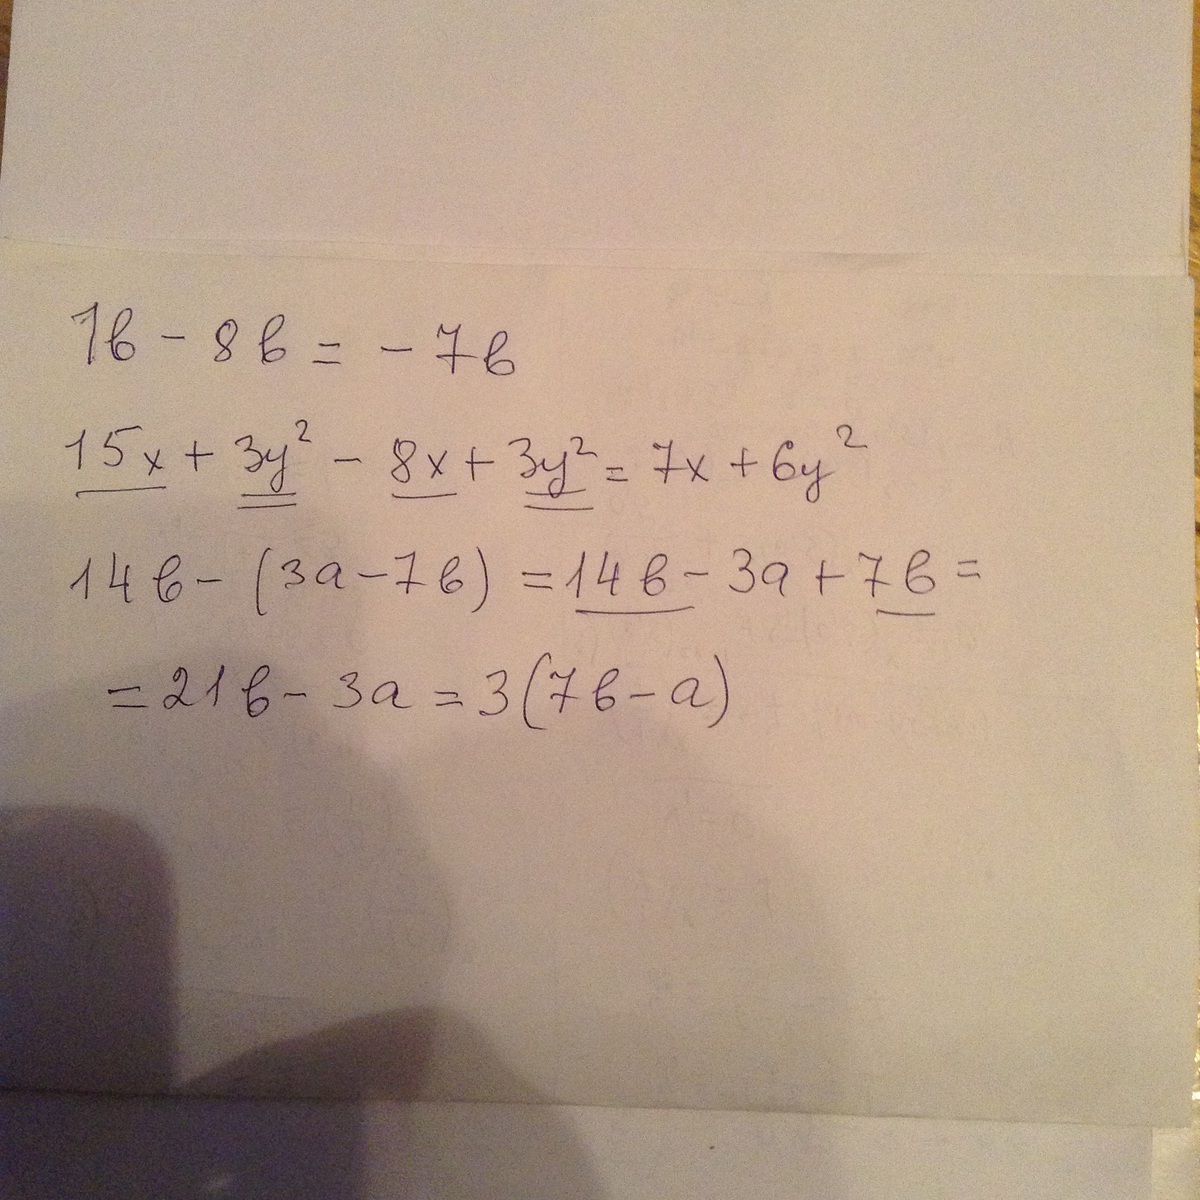 1в - 8в = - 7в
15x + 3y² - 8x + 3y² = 7x + 6y²
14в - (3а - 7в) = 14в - 3а + 7в =
= 21в - 3а = 3(7в - а)